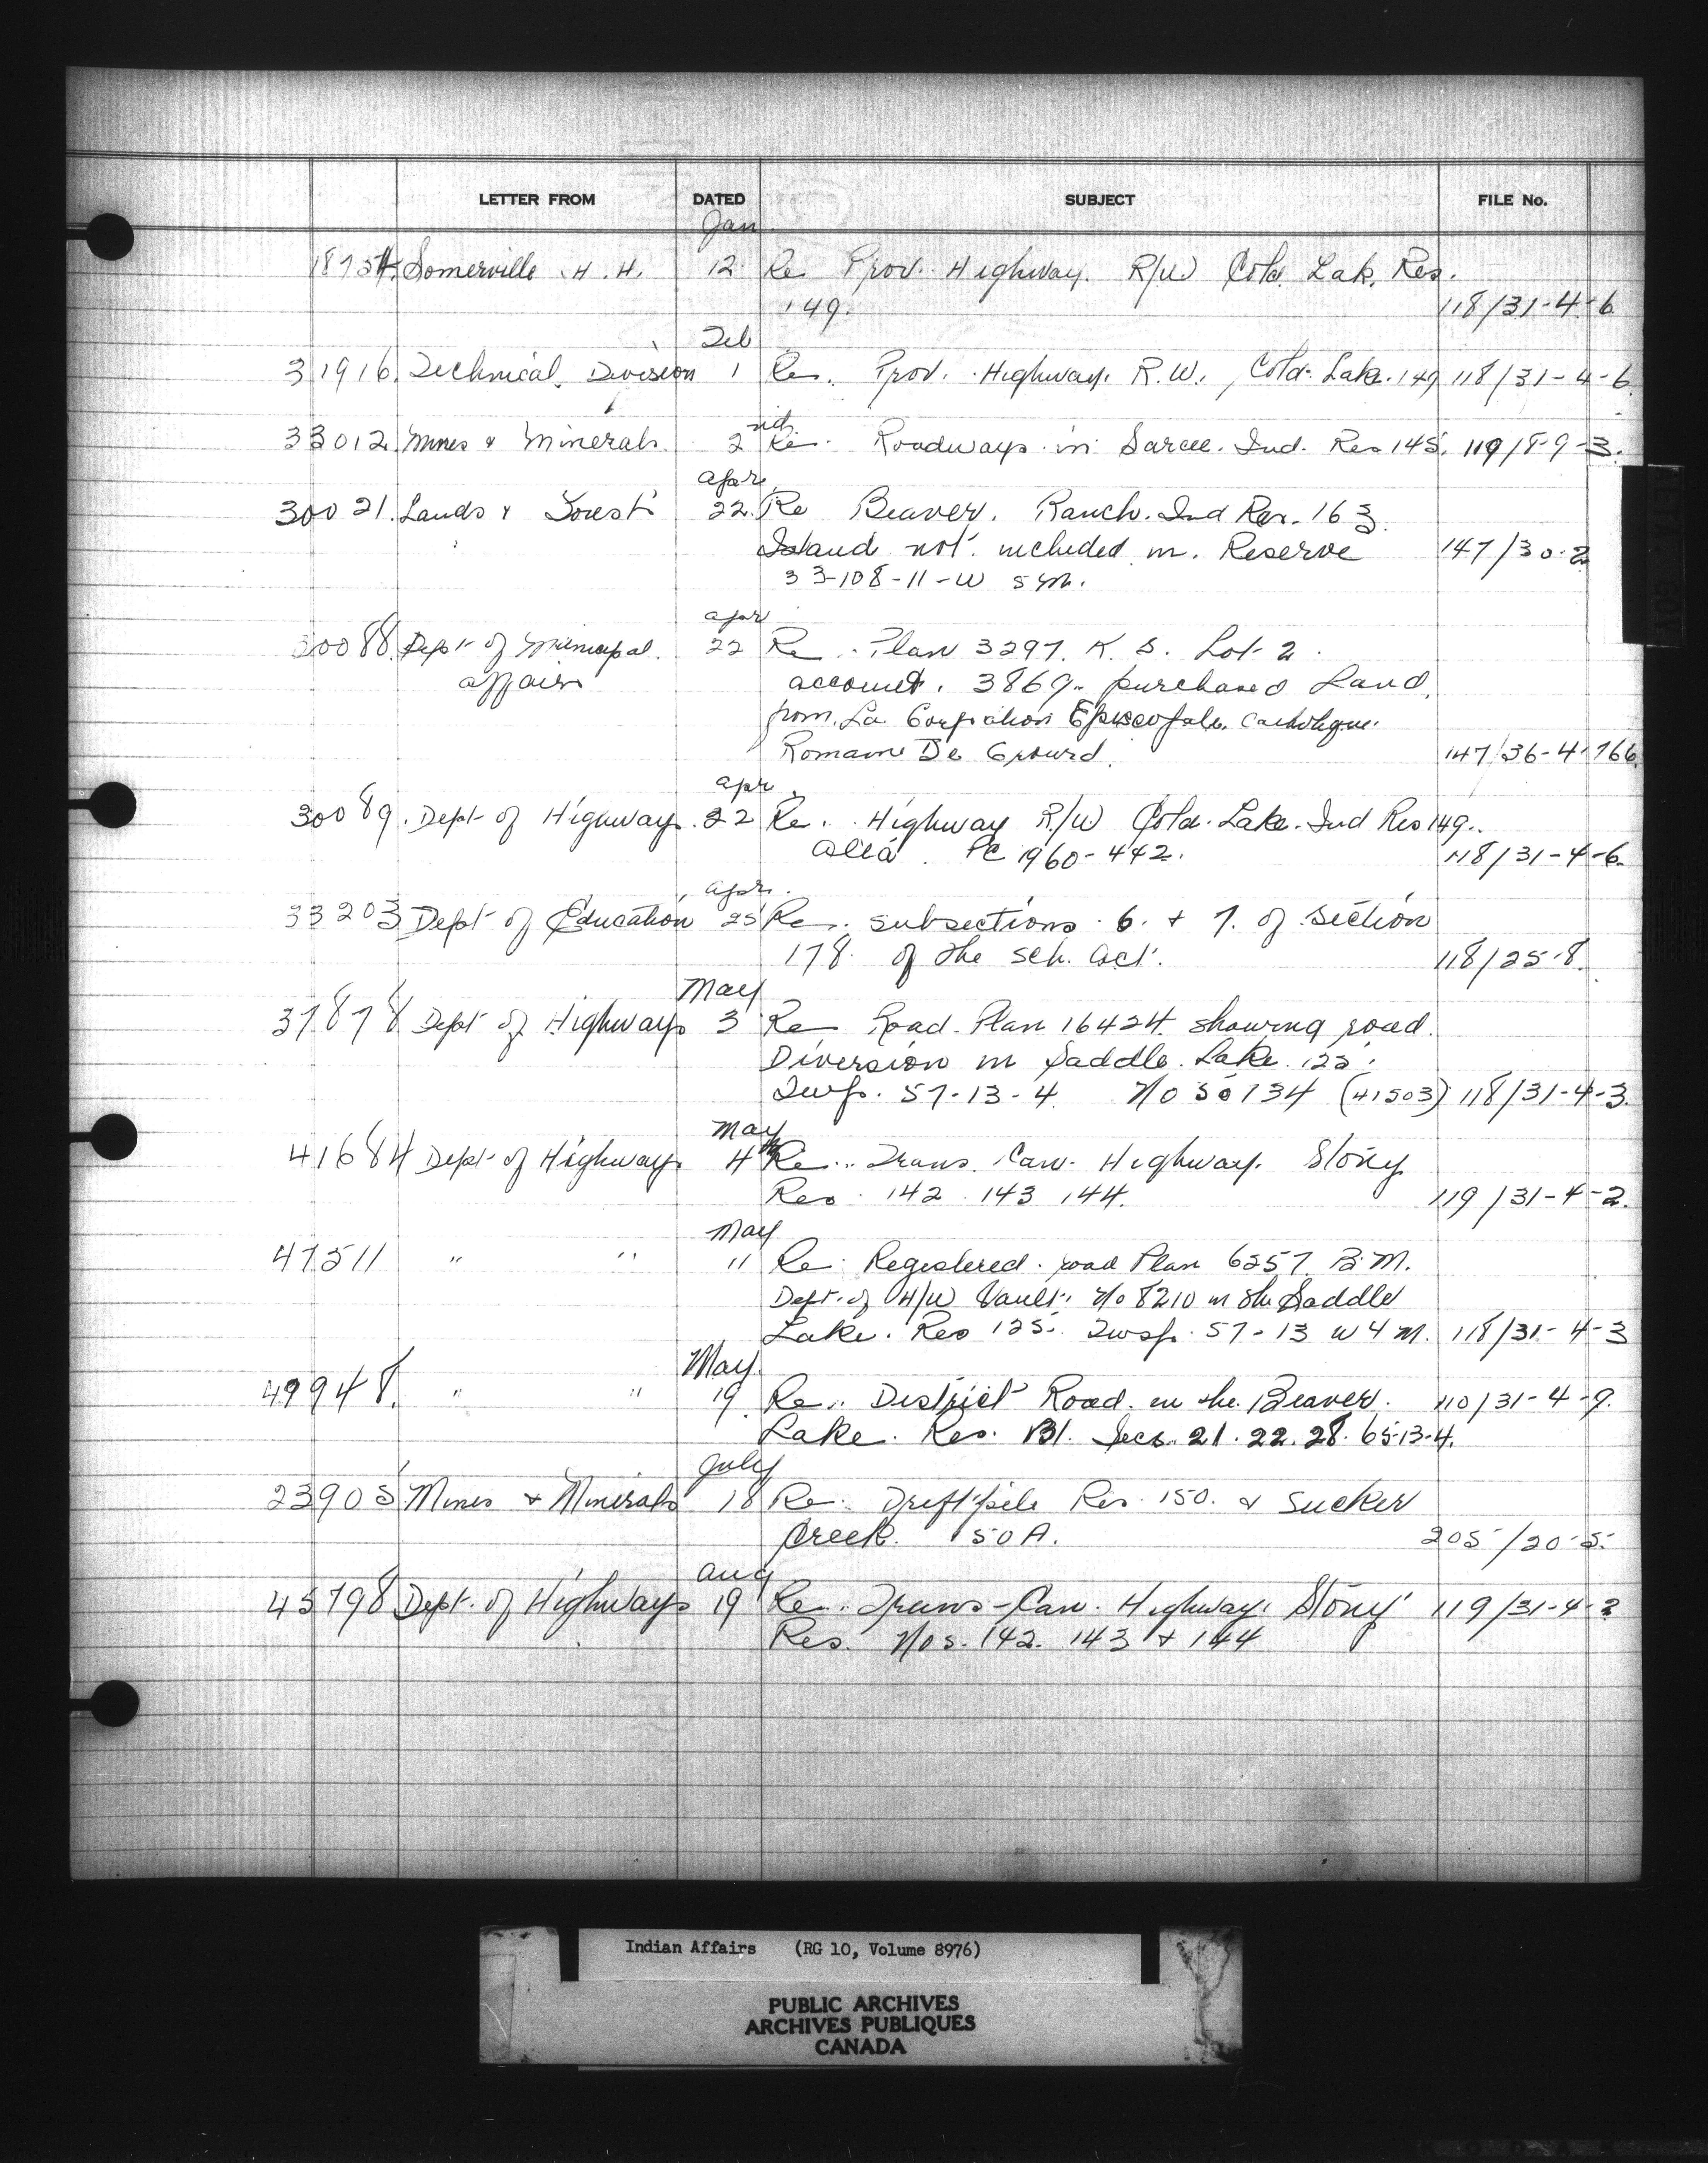 LETTER FROM DATED SUBJECT FILE No.
Jan
18754 Somerville H. H. 12 Re Prov. Highway. R/W Cold. Lak. Res.
149. 118/31-4-6
Feb
31916. Technical. Division 1 Re. Prov. Highway. R.W., Cold. Lake. 149 118/31-4-6
33012. Mines & Minerals. 2nd Re. Roadways in Sarcee. Ind. Res 145. 119/8-9-3.
apr.
30021. Lands & Forest 22. Re Beaver. Ranch. Ind Res. 163.
Island not included in. Reserve 147/30-2
33-108-11-W 5 m.
apr
30088. Dept of Municipal. 22 Re. Plan 3297. K. S. Lot 2.
affairs account. 3869. purchased Land.
from. La Episcopale. Catholique.
Romaine De Grouard. 147/36-4-766
apr
30089. Dept of Highways. 22 Re. Highway R/W Cold. Lake. Ind Res 149.
Alta. PC 1960-442. 118/31-4-6.
apr.
33203 Dept of Education 25 Re. subsections 6. & 7. of section
178. of the sch. act. 118/25-8.
May
37878 Dept of Highways 3 Re Road. Plan 16424. showing road.
Diversion in Saddle. Lake. 125.
Twp. 57-13-4. No 50134 (41503) 118/31-4-3.
May
41684 Dept of Highways 4th Re. Trans. Can. Highway. Stony
Res. 142 143 144. 119/31-4-2.
May
47511 " " 11 Re. Registered. road Plan 6257. B.M.
Dept. of H/W Vault. No 8210 in the Saddle
Lake. Res 125. Twsp. 57-13 W 4 M. 118/31-4-3
May.
49948. " " 19. Re. District Road. in the. Beaver. 110/31-4-9.
Lake. Res. 131. Secs. 21. 22. 28. 65-13-4.
July
23905 Mines & Minerals 18 Re. Driftpile Res. 150. & Sucker
Creek. 150A. 205/20-5.
aug
45798 Dept. of Highways 19 Re. Trans-Can. Highway. Stony 119/31-4-2
Res. Nos. 142. 143 & 144
ALTA. GOV.
Indian Affairs (RG 10, Volume 8976)
PUBLIC ARCHIVES
ARCHIVES PUBLIQUES
CANADA